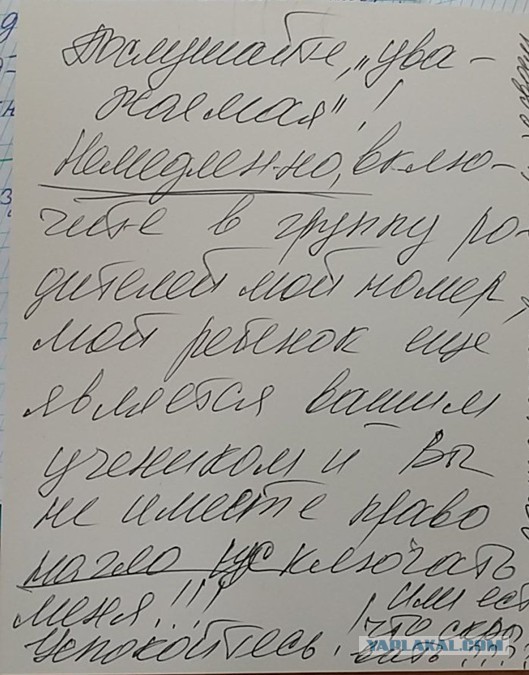 Послушайте, "ува-
жаемая"!
Немедленно, вклю-
чите в группу ро-
дителей мой номер,
мой ребенок еще
является вашим
учеником и Вы
не имеете право
нагло исключать
меня!!! Или ест
Успокойтесь! что скры
вать???
YAPLAKAL.COM